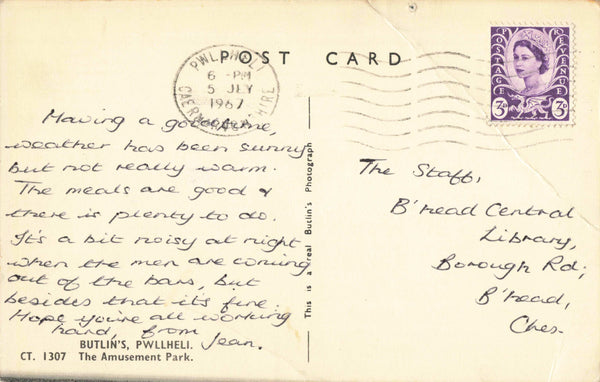 POST CARD
PWLLHELI
6 - PM
5 JLY
1967
CAERNARVONSHIRE
POSTAGE REVENUE
3D 3D
Having a good time,
weather has been sunny
but not really warm.
The meals are good &
there is plenty to do.
It's a bit noisy at night
when the men are coming
out of the bars, but
besides that its fine.
Hope you're all working
hard, from Jean.
This is a real Butlin's Photograph
The Staff,
B'head Central
Library,
Borough Rd;
B'head,
Ches.
BUTLIN'S, PWLLHELI.
CT. 1307 The Amusement Park.